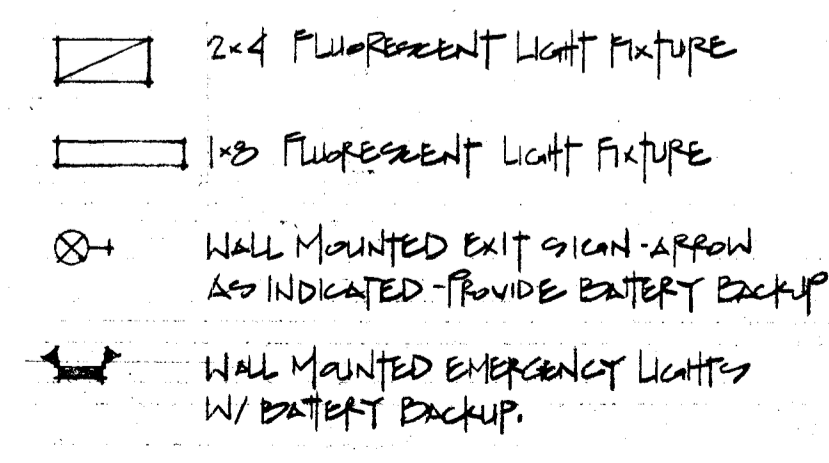 2x4 FLUORESCENT LIGHT FIXTURE
1x8 FLUORESCENT LIGHT FIXTURE
WALL MOUNTED EXIT SIGN - ARROW
AS INDICATED - PROVIDE BATTERY BACKUP
WALL MOUNTED EMERGENCY LIGHTS
W/ BATTERY BACKUP.